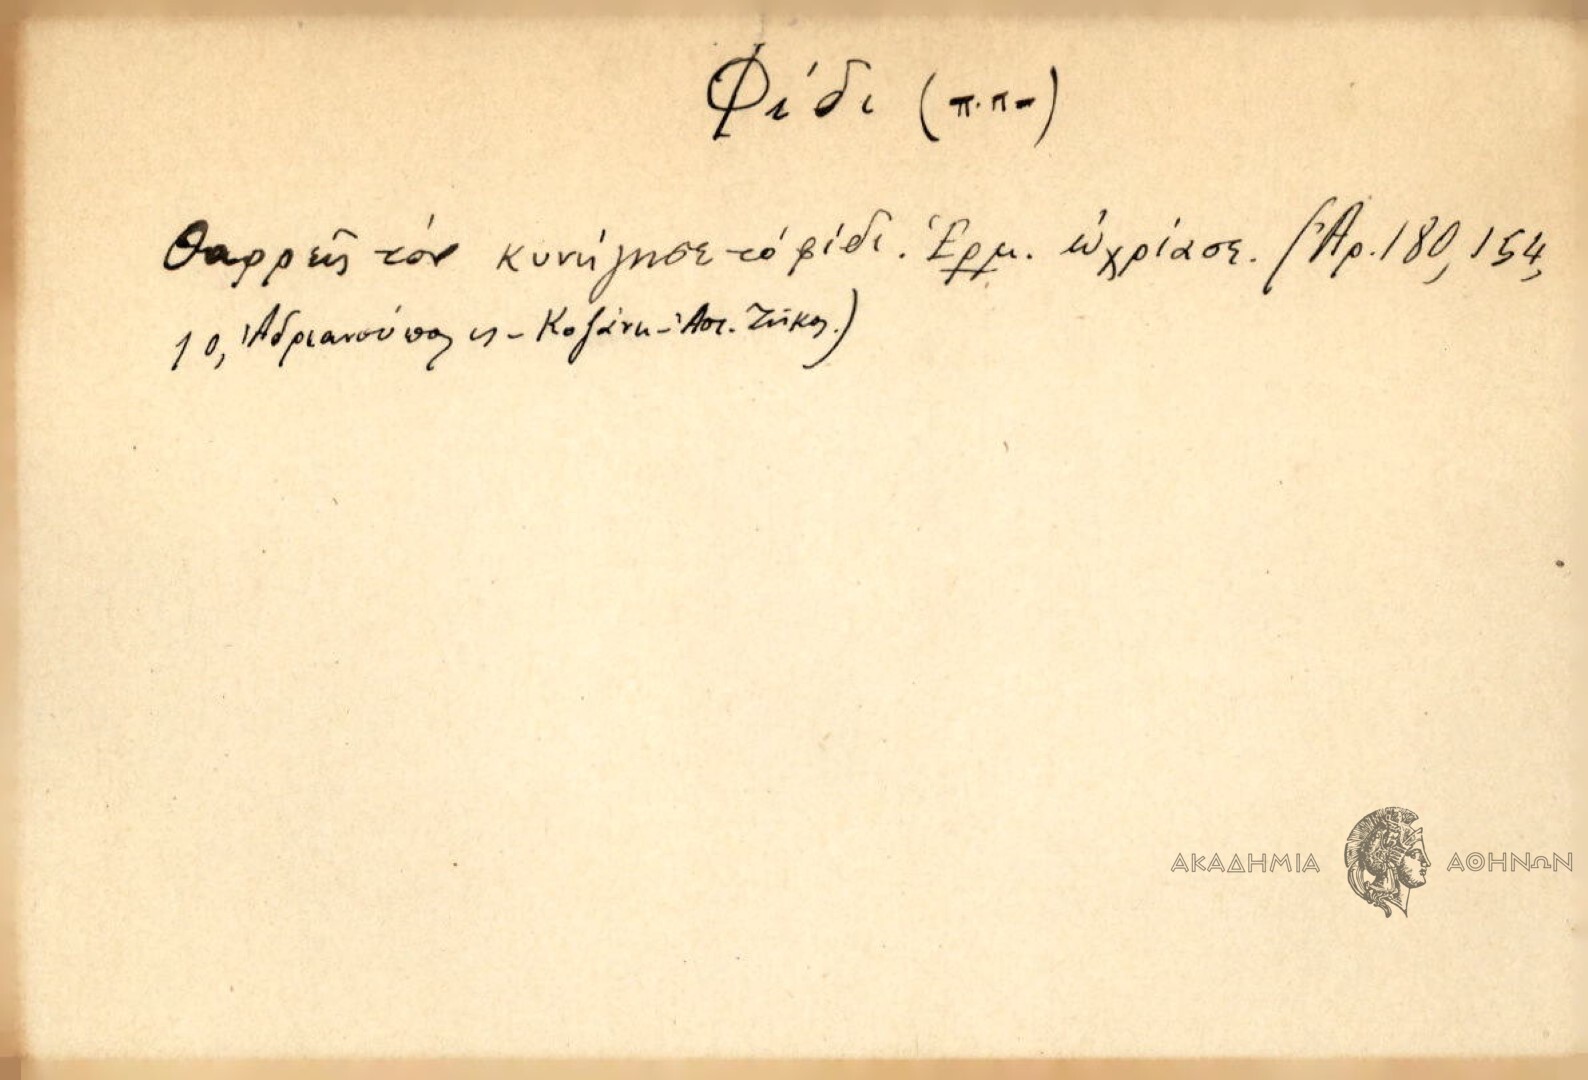 Φίδι (π.π-)
Θαρρεῖς τόν κυνήγησε τό φίδι. Ἑρμ. ὠχρίασε. (Ἀρ. 180, 154,
10, Ἀδριανούπολις - Κοζάνη - Ἀπ.
ΑΚΑΔΗΜΙΑ ΑΘΗΝΩΝ